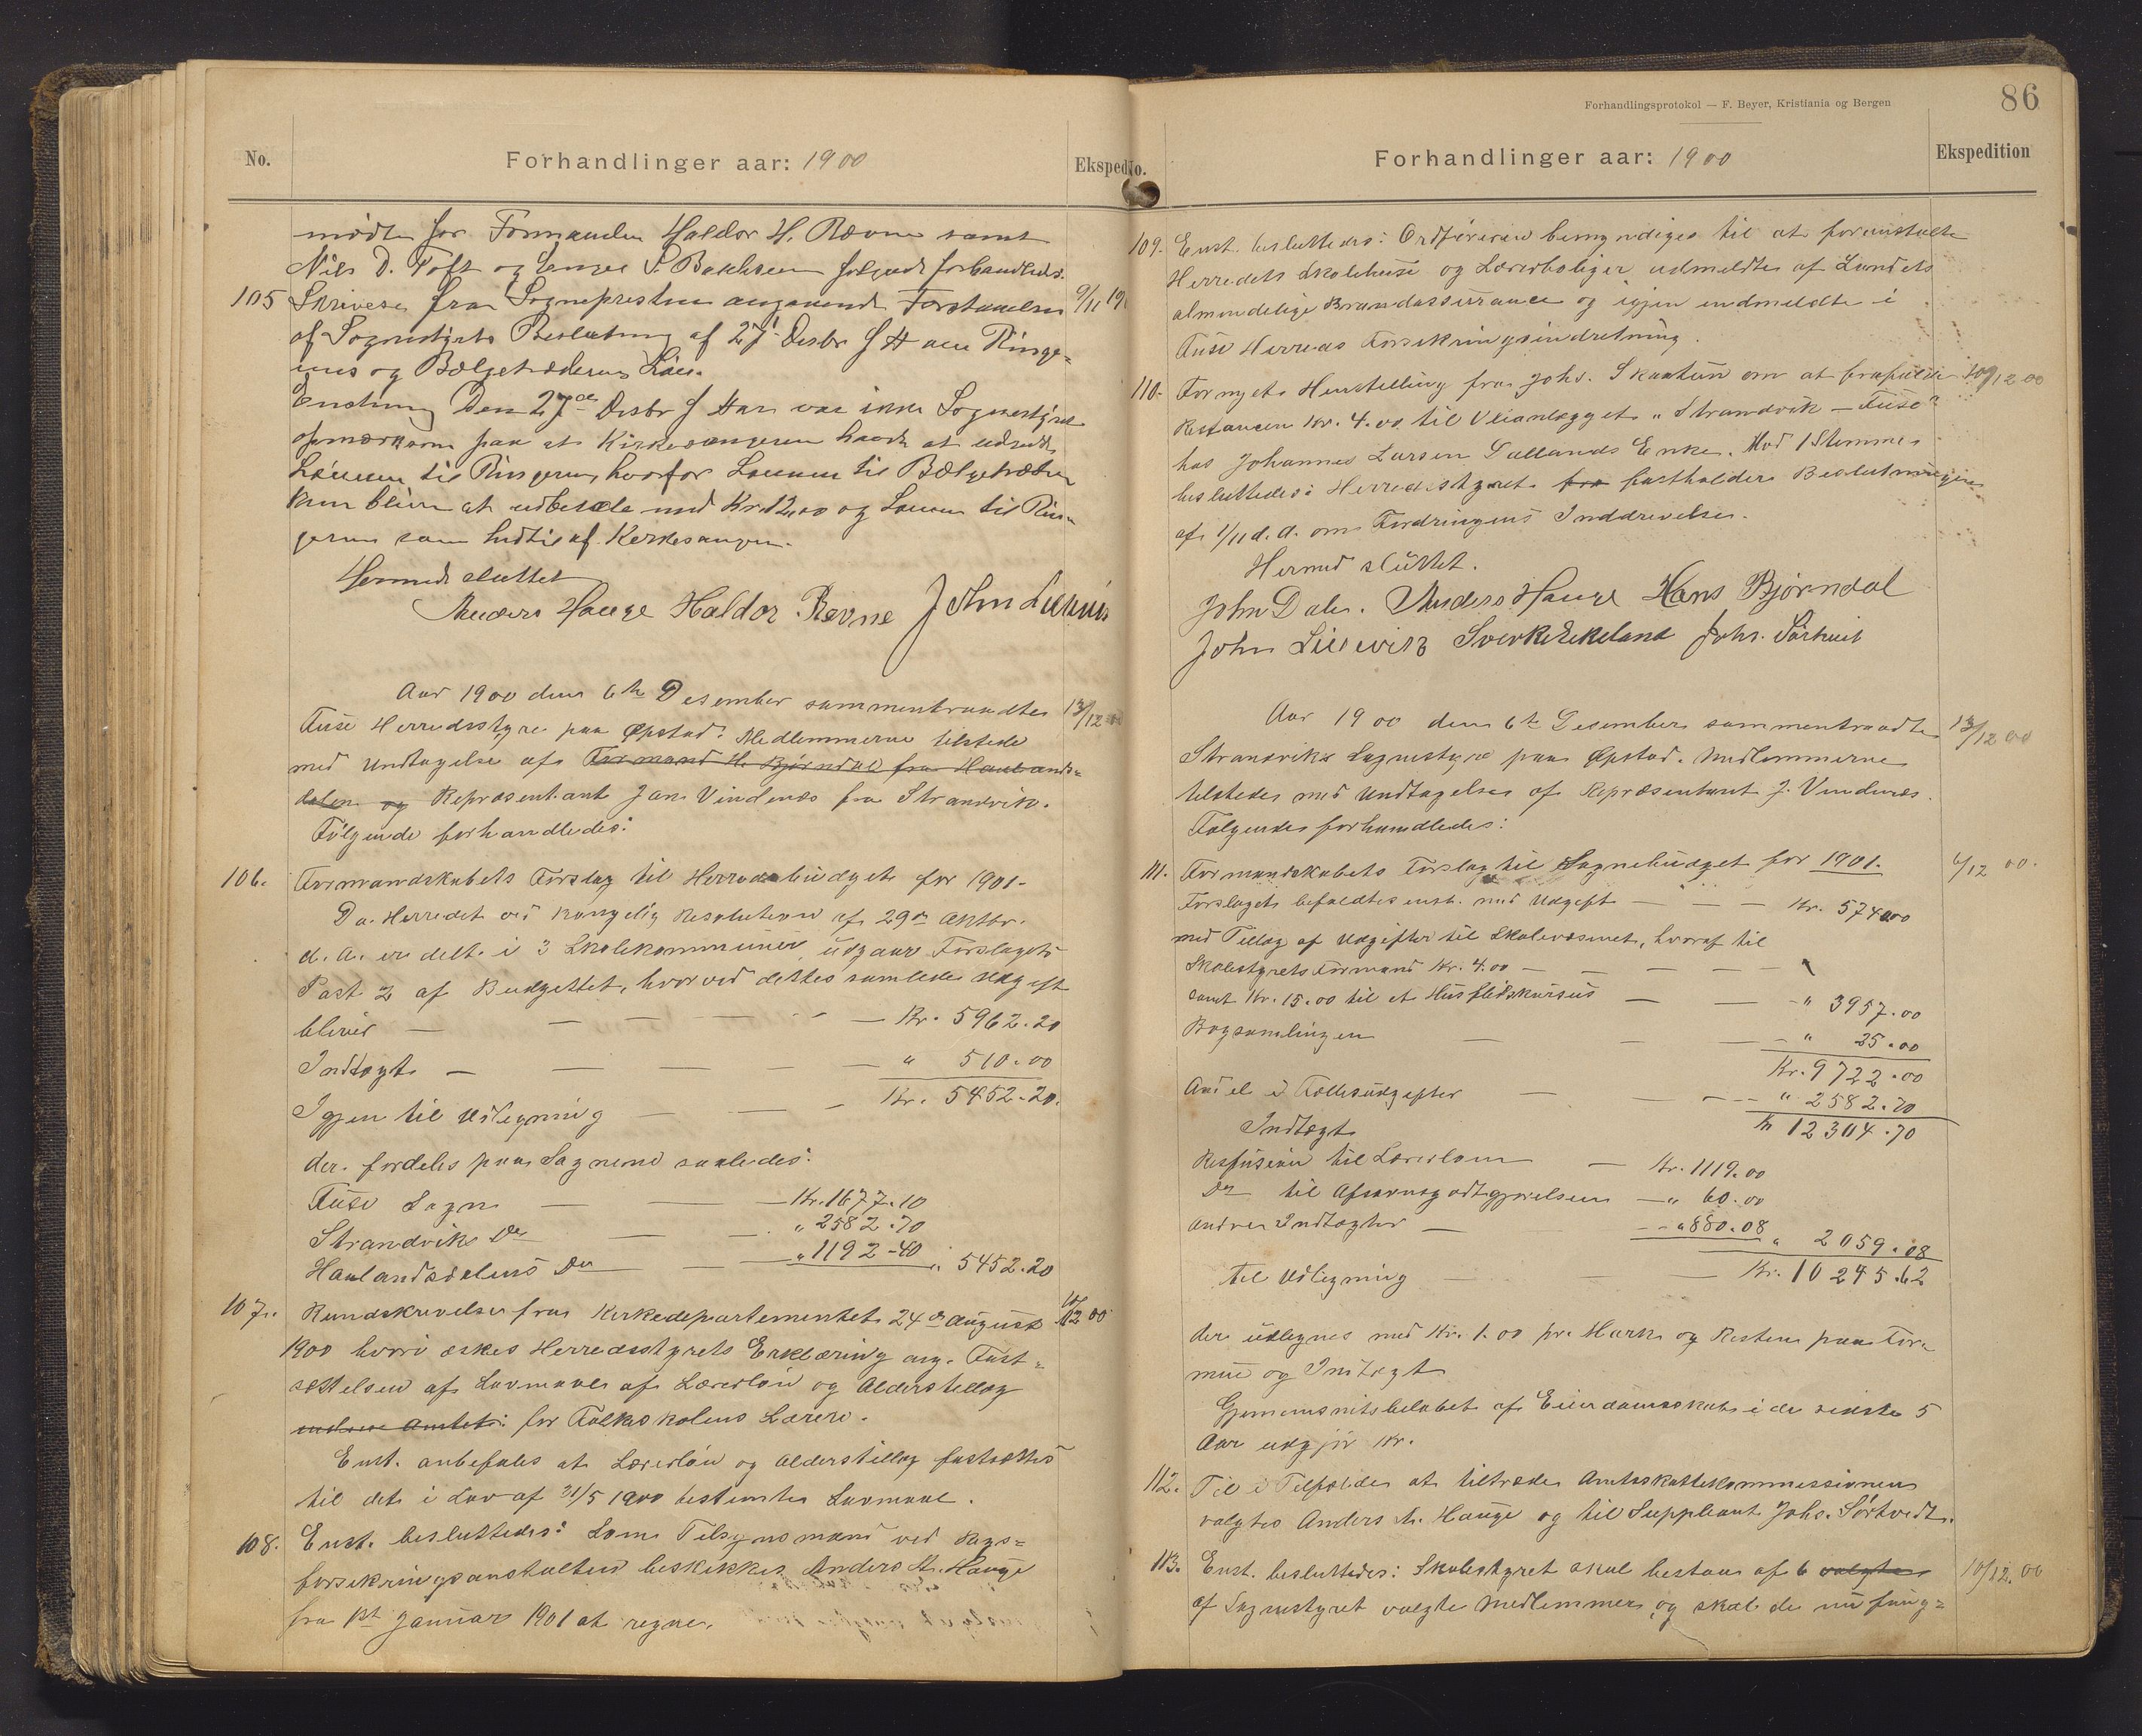 No.
Forhandlinger aar: 1900
Eksped
mødte for Formanden Haldor H. Rævne samt
Nils D. Toft og S. Bakksen følgende forhandledes.
105 Skrivese fra Sognepresten angaaende Forstaaelsen 9/11 19
af Sognestyrets Beslutning af 27' Desbr f A om Ringe=
rens og Bælgetræderens Løn.
Enstemmig Den 27de Desbr f Aar var ikke Sognestyret
opmærksom paa at Kirkesangeren havde at udrede
Lønnen til Ringeren, hvorfor Lønnen til Bælgetræderen
kun bliver at udbetale med Kr. 12,00 og Lønnen til Rin-
geren som hidtil af Kirkesangeren.
Hermed sluttet
Anders Hauge Haldor Revne John Lievig
Aar 1900 den 6te Desember sammentraadte 13/12 00
Fuse Herredsstyre paa Øpstad. Medlemmerne tilstede
med Undtagelse af Formand H. Bjørndal fra Haalands=
dalen og Repræsentant Jan Vindenæs fra Strandvik.
Følgende forhandledes:
106. Formandskabets Forslag til Herredsbudget for 1901.
Da Herredet ved kongelig Resolution af 29de Oktbr.
d. A. er delt i 3 Skolekommuner, udgaar Forslagets
Post 2 af Budgettet, hvorved dettes samlede Udgift
bliver — — — — — — Kr. 5962.20
Indtægt — — — — — " 510.00
Igjen til Udligning — — — Kr. 5452.20.
der fordeles paa Sognene saaledes:
Fuse Sogn — — — Kr. 1677.10
Strandvik Do — — " 2582.70
Haalandsdalens Do — — " 1192-40 " 5452.20
107. Rundskrivelse fra Kirkedepartementet 24de August 10/12 00
1900 hvori æskes Herredsstyrets Erklæring ang. Fast=
sættelsen af Lovmaal af Lærerløn og Alderstillæg
for Folkeskolens Lærere.
Enst. anbefales at Lærerløn og Alderstillæg fastsættes
til det i Lov af 31/5 1900 bestemte Lavmaal.
108. Enst. besluttedes: Som Tilsynsmand ved Rigs=
forsikringsanstalten beskikkes Anders M. Hauge
fra 1st Januar 1901 at regne.
Forhandlingsprotokol — F. Beyer, Kristiania og Bergen
86
No.
Forhandlinger aar: 1900
Ekspedition
109. Enst. besluttedes: Ordføreren bemyndiges til at foranstalte
Herredets Skolehuse og Lærerboliger udmeldte af Landets
almindelige Brandassurance og igjen indmeldte i
Fuse Herreds Forsikringsindretning.
110. Fornyet Henstilling fra Johs. Skaatun om at frafalde 10/12 00
Restancen Kr. 4.00 til Veianlægget „Strandvik — Fuse"
hos Johannes Larsen Gullands Enke. Mod 1 Stemme
besluttedes: Herredsstyret fra fastholder Beslutningen
af 1/11 d. A. om Fordringens Inddrivelse.
Hermed sluttet.
John Dale. Anders Hauge Hans Bjørndal
John Lievik Sverke Ekeland Johs. Sørtveit
Aar 1900 den 6te Desember sammentraadte 13/12 00
Strandviks Sognestyre paa Øpstad. Medlemmerne
tilstede med Undtagelse af Repræsentant J. Vindenæs.
Følgende forhandledes:
111. Formandskabets Forslag til Sognebudget for 1901. 6/12 00.
Forslaget befaldtes enst. med Udgift — — — Kr. 5740.00
med Tillæg af Udgifter til Skolevæsenet, hvoraf til
Skolestyrets Formand Kr. 4.00 — — — — —
samt Kr. 15.00 til et Husflidskursus — — " 3957.00
Bogsamlingen — — — " 25.00
Kr. 9722.00
Andel i Fællesudgifter — — — " 2582.70
Indtægt Kr 12304.70
Refusion til Lærerløn — Kr. 1119.00
Do til Afsavnsgodtgjørelsen — " 60.00
Andre Indtægter — — " 880.08 " 2059.08
Til Udligning — — — Kr. 10245.62
der udlignes med Kr. 1.00 pr. Mark og Resten paa For=
mue og Indtægt
Gjennemsnitsbeløbet af Eiendomsskat i de sidste 5
Aar udgjør Kr.
112. Til i Tilfælde at tiltræde Amtsskattekommissionen
valgtes Anders M. Hauge og til Suppleant Johs. Sørtvedt.
113. Enst. besluttedes: Skolestyret skal bestaa af 6 valgte 10/12.00
af Sognestyret valgte Medlemmer, og skal de nu fung=